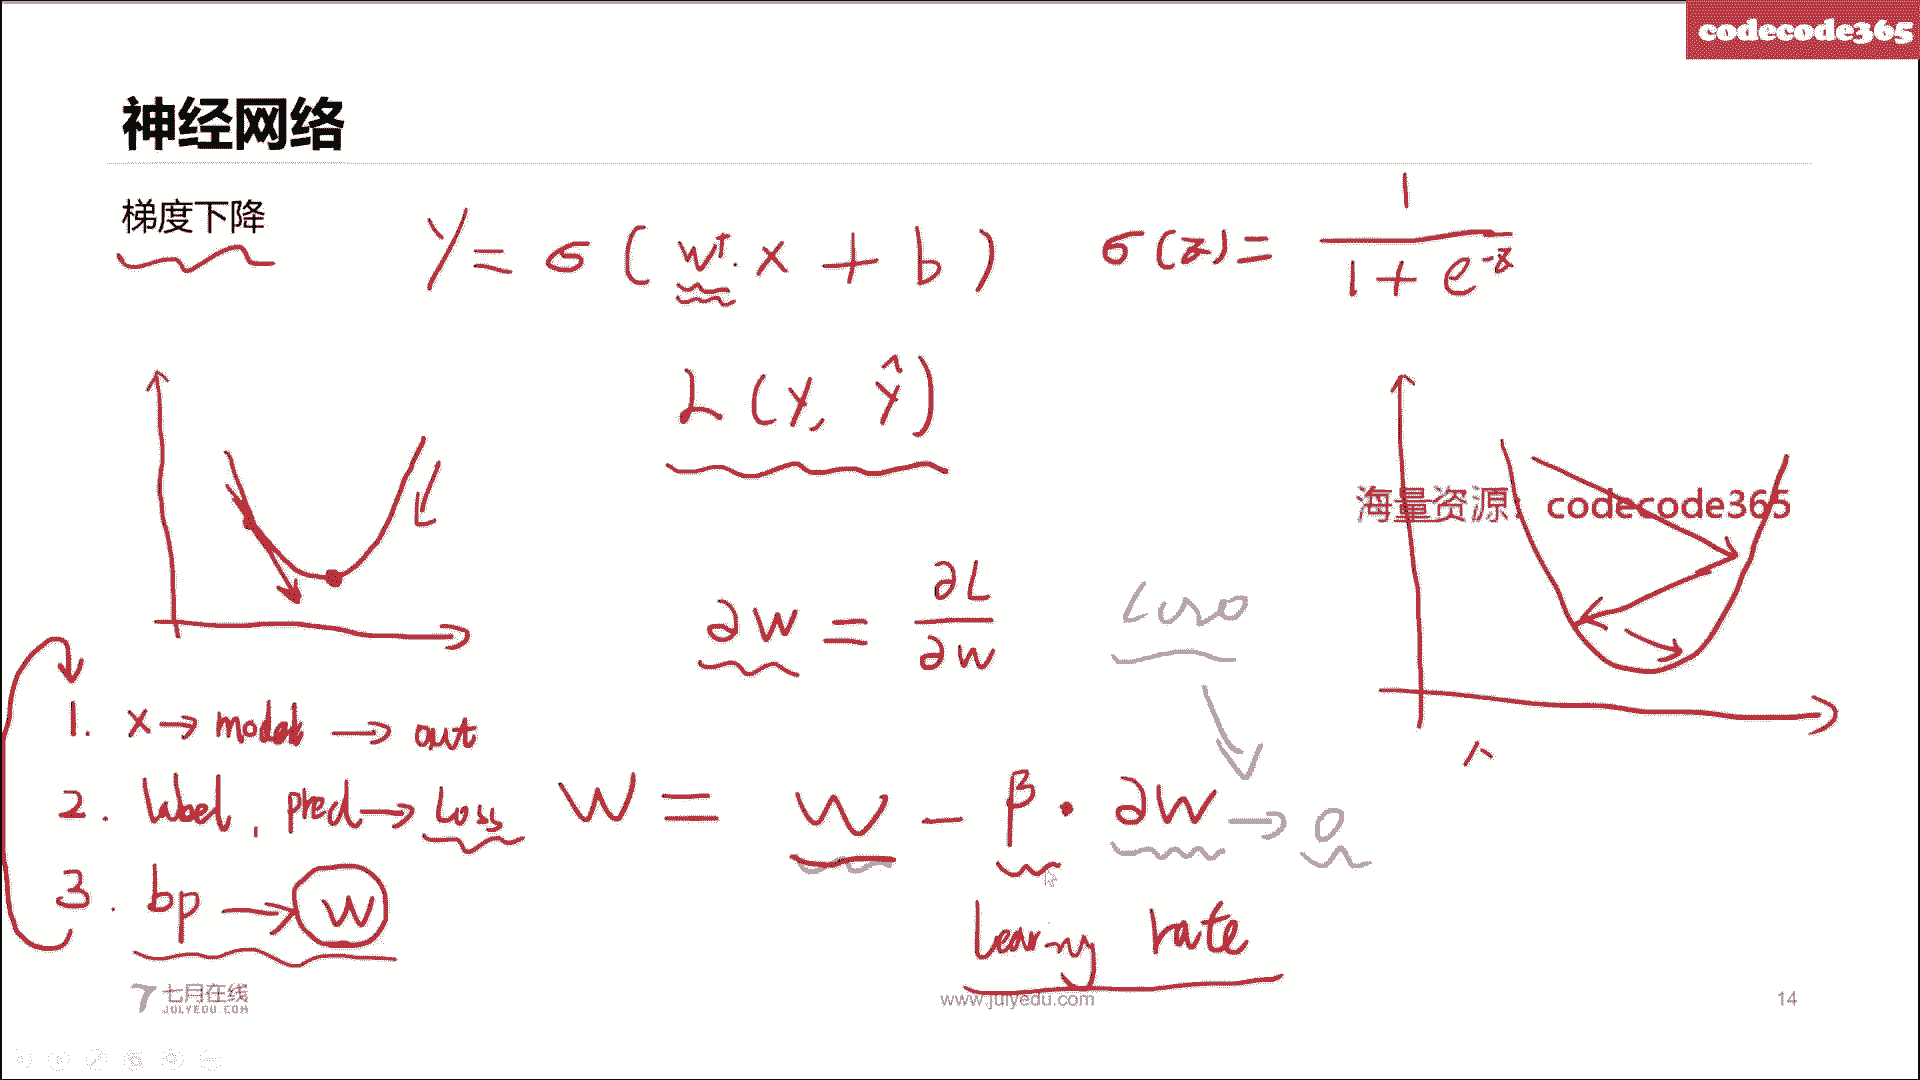 codecode365
神经网络
梯度下降
Y = σ ( wᵀ · x + b )
σ(z) = 1 / (1 + e^-z)
L ( Y, Ŷ )
海量资源: codecode365
∂w = ∂L / ∂w
Loss
1. x → model → out
2. label, pred → Loss
W = W − β · ∂W → 0
3. bp → W
learning rate
七月在线
JULYEDU.COM
www.julyedu.com
14